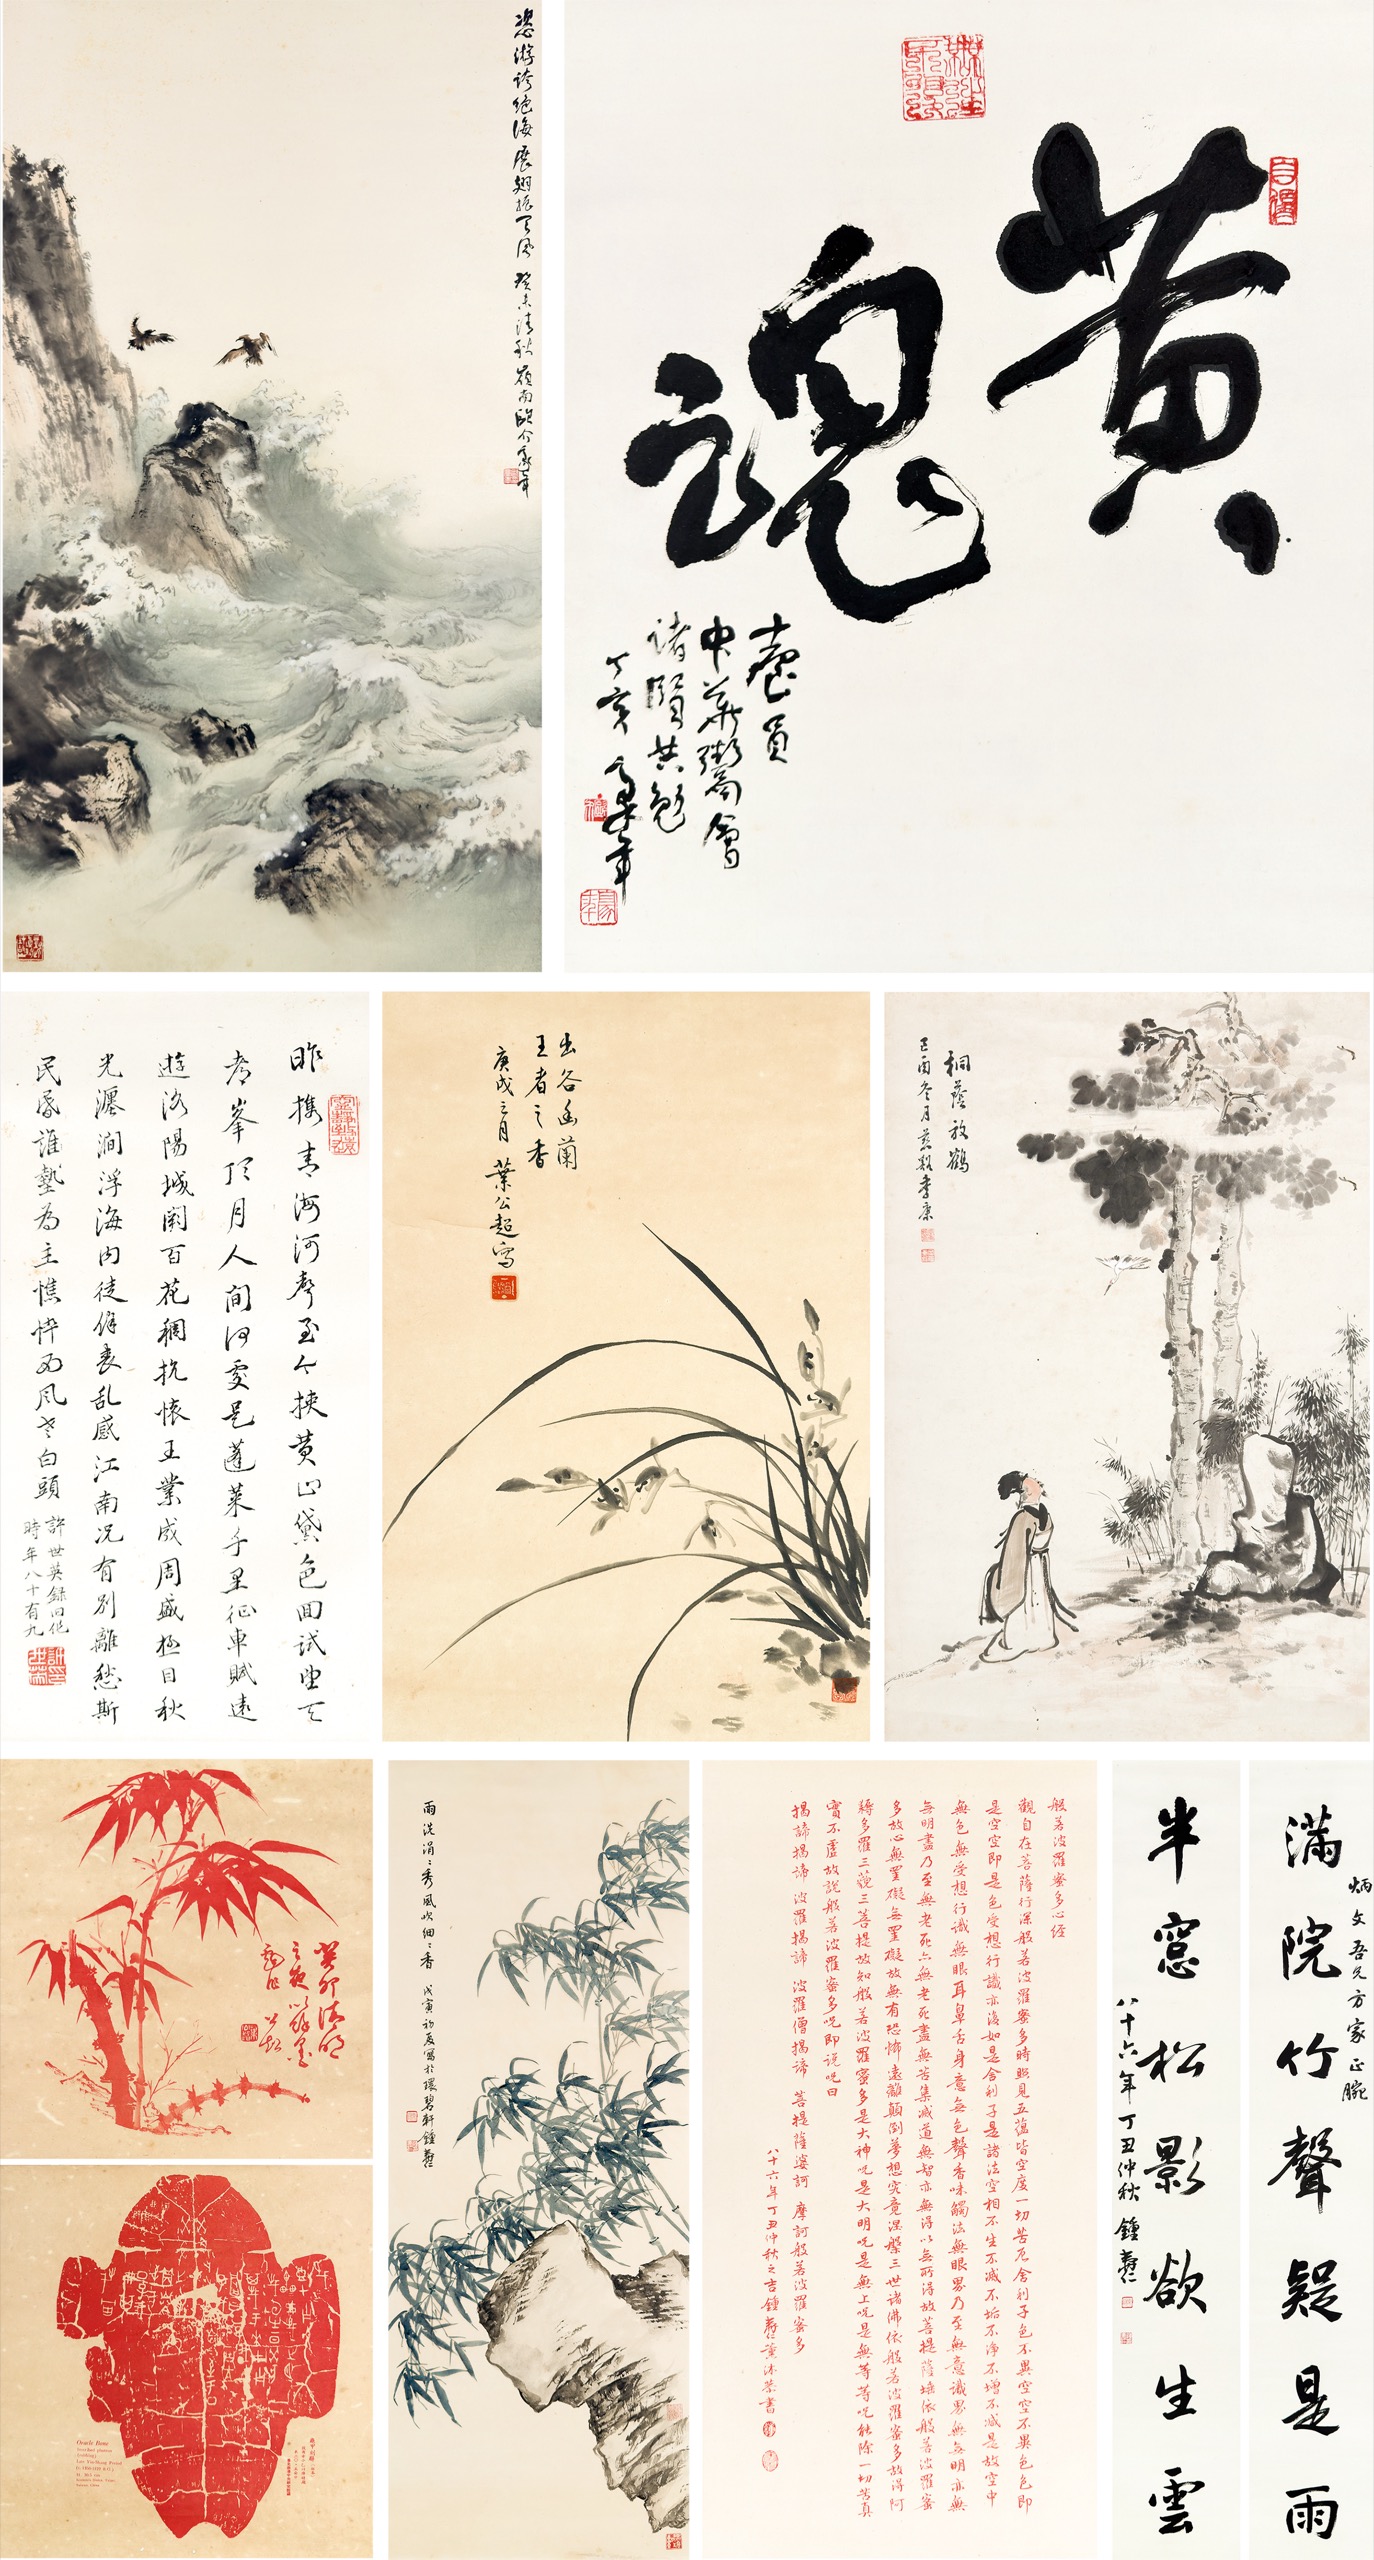 恣游誇絕海展翅振天風癸未清秋嶺南歐介豪年
黃魂
壹員
中華
諸賢共勉
丁亥豪年
昨攜青海河聲至今挾黃山黛色回試望天
峯頂月人間何處是蓬萊千里征車賦遠
遊洛陽城闕百花稠抗懷王業成周盛極目秋
光瀍澗浮海內徒傷喪亂感江南況有別離愁斯
民屬誰為主憔悴西風老白頭
許世英錄旧作
時年八十有九
出谷幽蘭
王者之香
庚戌三月 葉公超寫
桐蔭放鶴
己酉冬月
癸卯清明
雨洗涓〻秀風吹細〻香 戊寅初夏寫於環碧軒鍾壽仁
般若波羅蜜多心經
觀自在菩薩行深般若波羅蜜多時照見五蘊皆空度一切苦厄舍利子色不異空空不異色色即
是空空即是色受想行識亦復如是舍利子是諸法空相不生不滅不垢不淨不增不減是故空中
無色無受想行識無眼耳鼻舌身意無色聲香味觸法無眼界乃至無意識界無無明亦無
無明盡乃至無老死亦無老死盡無苦集滅道無智亦無得以無所得故菩提薩埵依般若波羅蜜
多故心無罣礙無罣礙故無有恐怖遠離顛倒夢想究竟涅槃三世諸佛依般若波羅蜜多故得阿
耨多羅三藐三菩提故知般若波羅蜜多是大神咒是大明咒是無上咒是無等等咒能除一切苦真
實不虛故說般若波羅蜜多咒即說咒曰
揭諦揭諦 波羅揭諦 波羅僧揭諦 菩提薩婆訶 摩訶般若波羅蜜多
八十六年丁丑仲秋之吉鍾壽仁薰沐恭書
炳文吾兄方家正腕
滿院竹聲疑是雨
半窓松影欲生雲
八十六年丁丑仲秋 鍾壽仁
Oracle Bone